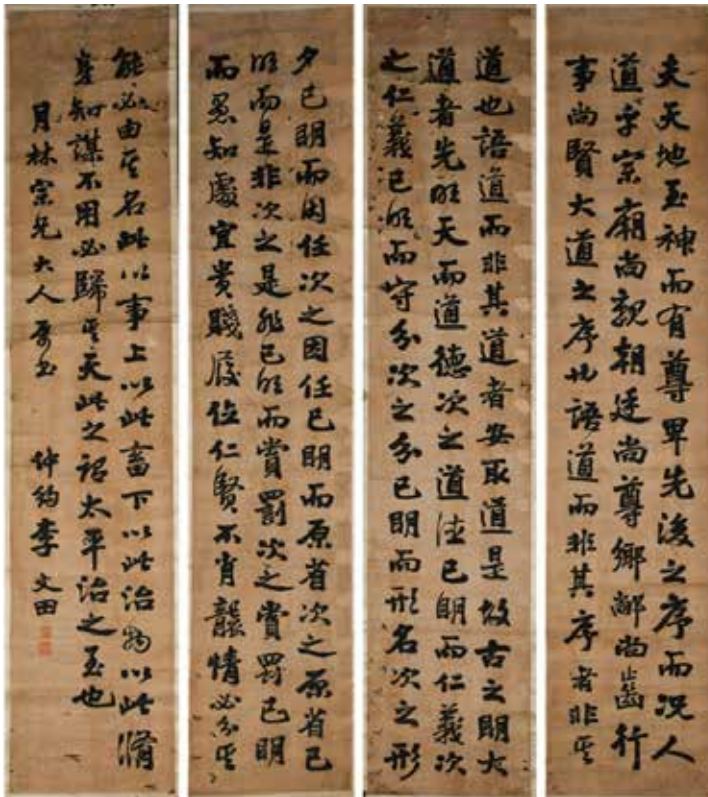 夫天地至神而有尊卑先後之序而況人
道乎宗廟尚親朝廷尚尊鄉黨尚齒行
事尚賢大道之序也語道而非其序者非其
道也語道而非其道者安取道是故古之明大
道者先明天而道德次之道德已明而仁義次
之仁義已明而守分次之分已明而形名次之形
名已明而因任次之因任已明而原省次之原省已
明而是非次之是非已明而賞罰次之賞罰已明
而愚知處宜貴賤履位仁賢不肖襲情必分其
能必由其名此以事上以此畜下以此治物以此脩
身知謀不用必歸其天此之謂太平治之至也
月林宗兄大人屬書 仲約李文田